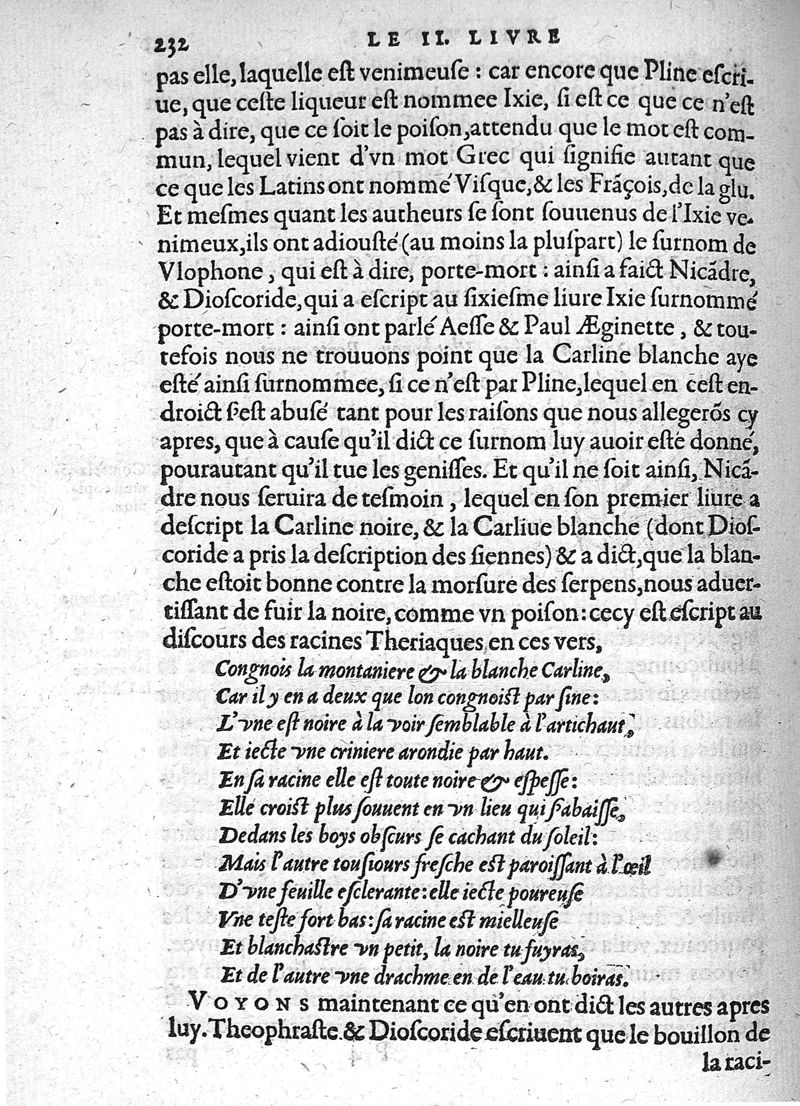 232 LE II. LIVRE
pas elle, laquelle eſt venimeuſe : car encore que Pline eſcri-
ue, que ceſte liqueur eſt nommee Ixie, ſi eſt ce que ce n'eſt
pas à dire, que ce ſoit le poiſon, attendu que le mot eſt com-
mun, lequel vient d'vn mot Grec qui ſignifie autant que
ce que les Latins ont nommé Viſque, & les Frãçois, de la glu.
Et meſmes quant les autheurs ſe ſont ſouuenus de l'Ixie ve-
nimeux, ils ont adiouſté (au moins la pluſpart) le ſurnom de
Vlophone, qui eſt à dire, porte-mort : ainſi a faict Nicãdre,
& Dioſcoride, qui a eſcript au ſixieſme liure Ixie ſurnommé
porte-mort : ainſi ont parlé Aeſſe & Paul Æginette, & tou-
tefois nous ne trouuons point que la Carline blanche aye
eſté ainſi ſurnommee, ſi ce n'eſt par Pline, lequel en ceſt en-
droict ſ'eſt abuſé tant pour les raiſons que nous allegerõs cy
apres, que à cauſe qu'il dict ce ſurnom luy auoir eſté donné,
pourautant qu'il tue les geniſſes. Et qu'il ne ſoit ainſi, Nicã-
dre nous ſeruira de teſmoin, lequel en ſon premier liure a
deſcript la Carline noire, & la Carliue blanche (dont Dioſ-
coride a pris la deſcription des ſiennes) & a dict, que la blan-
che eſtoit bonne contre la morſure des ſerpens, nous aduer-
tiſſant de fuir la noire, comme vn poiſon : cecy eſt eſcript au
diſcours des racines Theriaques, en ces vers,
Congnois la montaniere & la blanche Carline,
Car il y en a deux que lon congnoiſt par ſine :
L'vne eſt noire à la voir ſemblable à l'artichaut,
Et iecte vne criniere arondie par haut.
En ſa racine elle eſt toute noire & eſpeſſe :
Elle croiſt plus ſouuent en vn lieu qui ſ'abaiſſe,
Dedans les boys obſcurs ſe cachant du ſoleil :
Mais l'autre touſiours freſche eſt paroiſſant à l'œil
D'vne feuille eſclerante : elle iecte poureuſe
Vne teſte fort bas : ſa racine eſt mielleuſe
Et blanchaſtre vn petit, la noire tu fuyras,
Et de l'autre vne drachme en de l'eau tu boiras.
VOYONS maintenant ce qu'en ont dict les autres apres
luy. Theophraſte & Dioſcoride eſcriuent que le bouillon de
la raci-